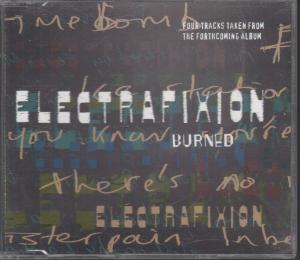 Time Bomb
FOUR TRACKS TAKEN FROM
THE FORTHCOMING ALBUM
ELECTRAFIXION
you know you're
BURNED
there's no i
ELECTRAFIXION
isterpain